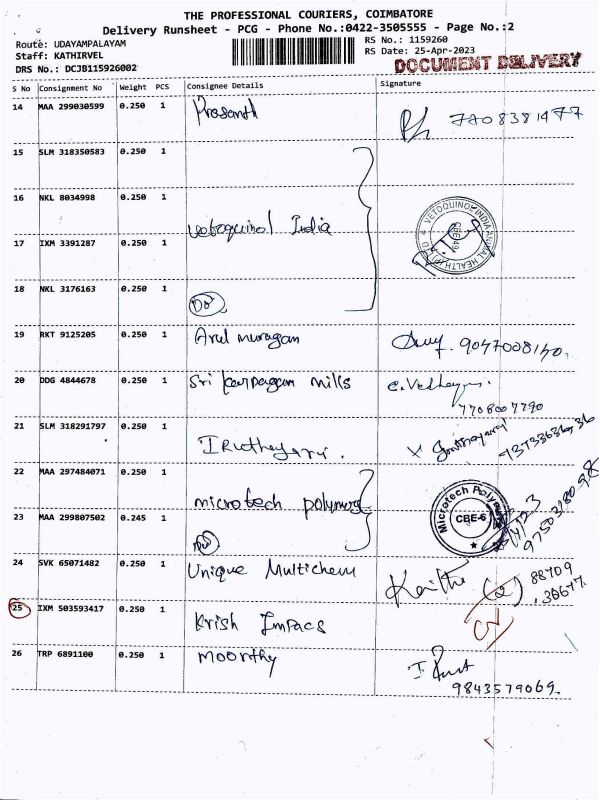 THE PROFESSIONAL COURIERS, COIMBATORE
Delivery Runsheet - PCG - Phone No.:0422-3505555 - Page No.:2
Route: UDAYAMPALAYAM
RS No.: 1159260
Staff: KATHIRVEL
RS Date: 25-Apr-2023
DRS No.: DCJB115926002
DOCUMENT DELIVERY
S No Consignment No Weight PCS Consignee Details Signature
14 MAA 299030599 0.250 1 Prasanth
15 SLM 318350583 0.250 1
16 NKL 8034998 0.250 1
VETOQUINOL INDIA ANIMAL HEALTH
Vetoquinol India
17 IXM 3391287 0.250 1
18 NKL 3176163 0.250 1
Do
19 RKT 9125205 0.250 1 Arul murugan
9047008140.
20 DDG 4844678 0.250 1 Sri karpagam mills
7708007790
21 SLM 318291797 0.250 1
22 MAA 297484071 0.250 1
microtech polymers
Microtech Polymers
CBE-6
23 MAA 299807502 0.245 1
Do
24 SVK 65071482 0.250 1 Unique Multichem
88709
36677
25 IXM 503593417 0.250 1 Krish Impacs
26 TRP 6891100 0.250 1 Moorthy
9843579069.